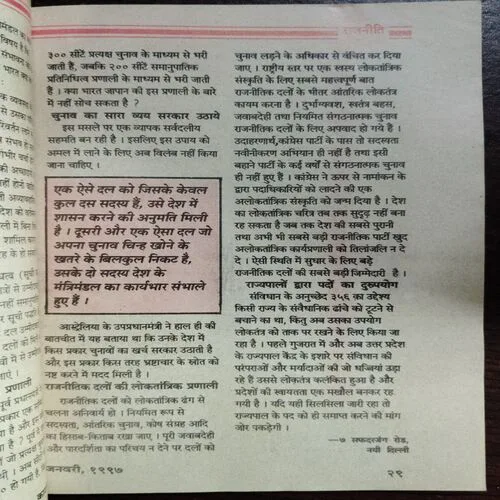 राजनीति
३०० सीटें प्रत्यक्ष चुनाव के माध्यम से भरी
जाती हैं, जबकि २०० सीटें समानुपातिक
प्रतिनिधित्व प्रणाली के माध्यम से भरी जाती
हैं । क्या भारत जापान की इस प्रणाली के बारे
में नहीं सोच सकता है ?
चुनाव का सारा व्यय सरकार उठाये
इस मसले पर एक व्यापक सर्वदलीय
सहमति बन रही है । इसलिए इस उपाय को
अमल में लाने के लिए अब विलंब नहीं किया
जाना चाहिए ।
एक ऐसे दल को जिसके केवल
कुल दस सदस्य हैं, उसे देश में
शासन करने की अनुमति मिली
है । दूसरी और एक ऐसा दल जो
अपना चुनाव चिन्ह खोने के
खतरे के बिलकुल निकट है,
उसके दो सदस्य देश के
मंत्रिमंडल का कार्यभार संभाले
हुए हैं ।
आस्ट्रेलिया के उपप्रधानमंत्री ने हाल ही की
बातचीत में यह बताया था कि उनके देश में
किस प्रकार चुनावों का खर्च सरकार उठाती है
और इस प्रकार किस तरह भ्रष्टाचार के स्रोत को
नष्ट करने में मदद मिली है ।
राजनीतिक दलों की लोकतांत्रिक प्रणाली
राजनीतिक दलों को लोकतांत्रिक ढंग से
चलना अनिवार्य हो । नियमित रूप से
सदस्यता, आंतरिक चुनाव, कोष संग्रह आदि
का हिसाब-किताब रखा जाए । पूरी जवाबदेही
और पारदर्शिता का परिचय न देने पर दलों को
चुनाव लड़ने के अधिकार से वंचित कर दिया
जाए । राष्ट्रीय स्तर पर एक स्वस्थ लोकतांत्रिक
संस्कृति के लिए सबसे महत्वपूर्ण बात
राजनीतिक दलों के भीतर आंतरिक लोकतंत्र
कायम करना है । दुर्भाग्यवश, स्वतंत्र बहस,
जवाबदेही तथा नियमित संगठनात्मक चुनाव
राजनीतिक दलों के लिए अपवाद हो गये हैं ।
उदाहरणार्थ,कांग्रेस पार्टी के पास तो सदस्यता
नवीनीकरण अभियान ही नहीं है तथा इसी
बहाने पार्टी के कई वर्षों से संगठनात्मक चुनाव
ही नहीं हुए हैं । कांग्रेस ने ऊपर से नामांकन के
द्वारा पदाधिकारियों को लादने की एक
अलोकतांत्रिक संस्कृति को जन्म दिया है । देश
का लोकतांत्रिक चरित्र तब तक सुदृढ़ नहीं बना
रह सकता है जब तक देश की सबसे पुरानी
तथा अभी भी सबसे बड़ी राजनीतिक पार्टी खुद
अलोकतांत्रिक कार्यप्रणाली को तिलांजलि न दे
दे । ऐसी स्थिति में सुधार के लिए बड़े
राजनीतिक दलों की सबसे बड़ी जिम्मेदारी है ।
राज्यपालों द्वारा पदों का दुरुपयोग
संविधान के अनुच्छेद ३५६ का उद्देश्य
किसी राज्य के संवैधानिक ढांचे को टूटने से
बचाने का था, किंतु अब उसका उपयोग
लोकतंत्र को ताक पर रखने के लिए किया जा
रहा है । पहले गुजरात में और अब उत्तर प्रदेश
के राज्यपाल केंद्र के इशारे पर संविधान की
परंपराओं और मर्यादाओं की जो धज्जियां उड़ा
रहे हैं उससे लोकतंत्र कलंकित हुआ है और
प्रदेशों की स्वायतता एक मखौल बनकर रह
गयी है । यदि यही सिलसिला जारी रहा तो
राज्यपाल के पद को ही समाप्त करने की मांग
जोर पकड़ेगी ।
—७ सफदरजंग रोड,
नयी दिल्ली
जनवरी, १९९७
२९